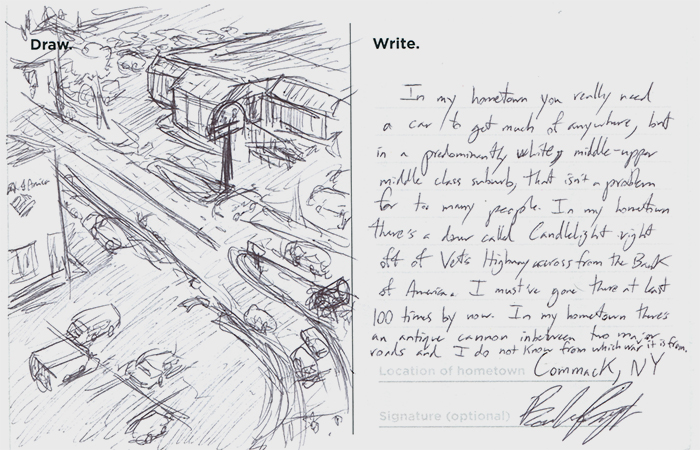 Draw.
Write.
In my hometown you really need
a car to get much of anywhere, but
in a predominantly white, middle-upper
middle class suburb, that isn't a problem
for too many people. In my hometown
there's a diner called Candlelight right
off of Vets Highway across from the Bank
of America. I must've gone there at least
100 times by now. In my hometown there's
an antique cannon inbetween two major
roads and I do not know from which war it is from.
Location of hometown Commack, NY
Signature (optional)